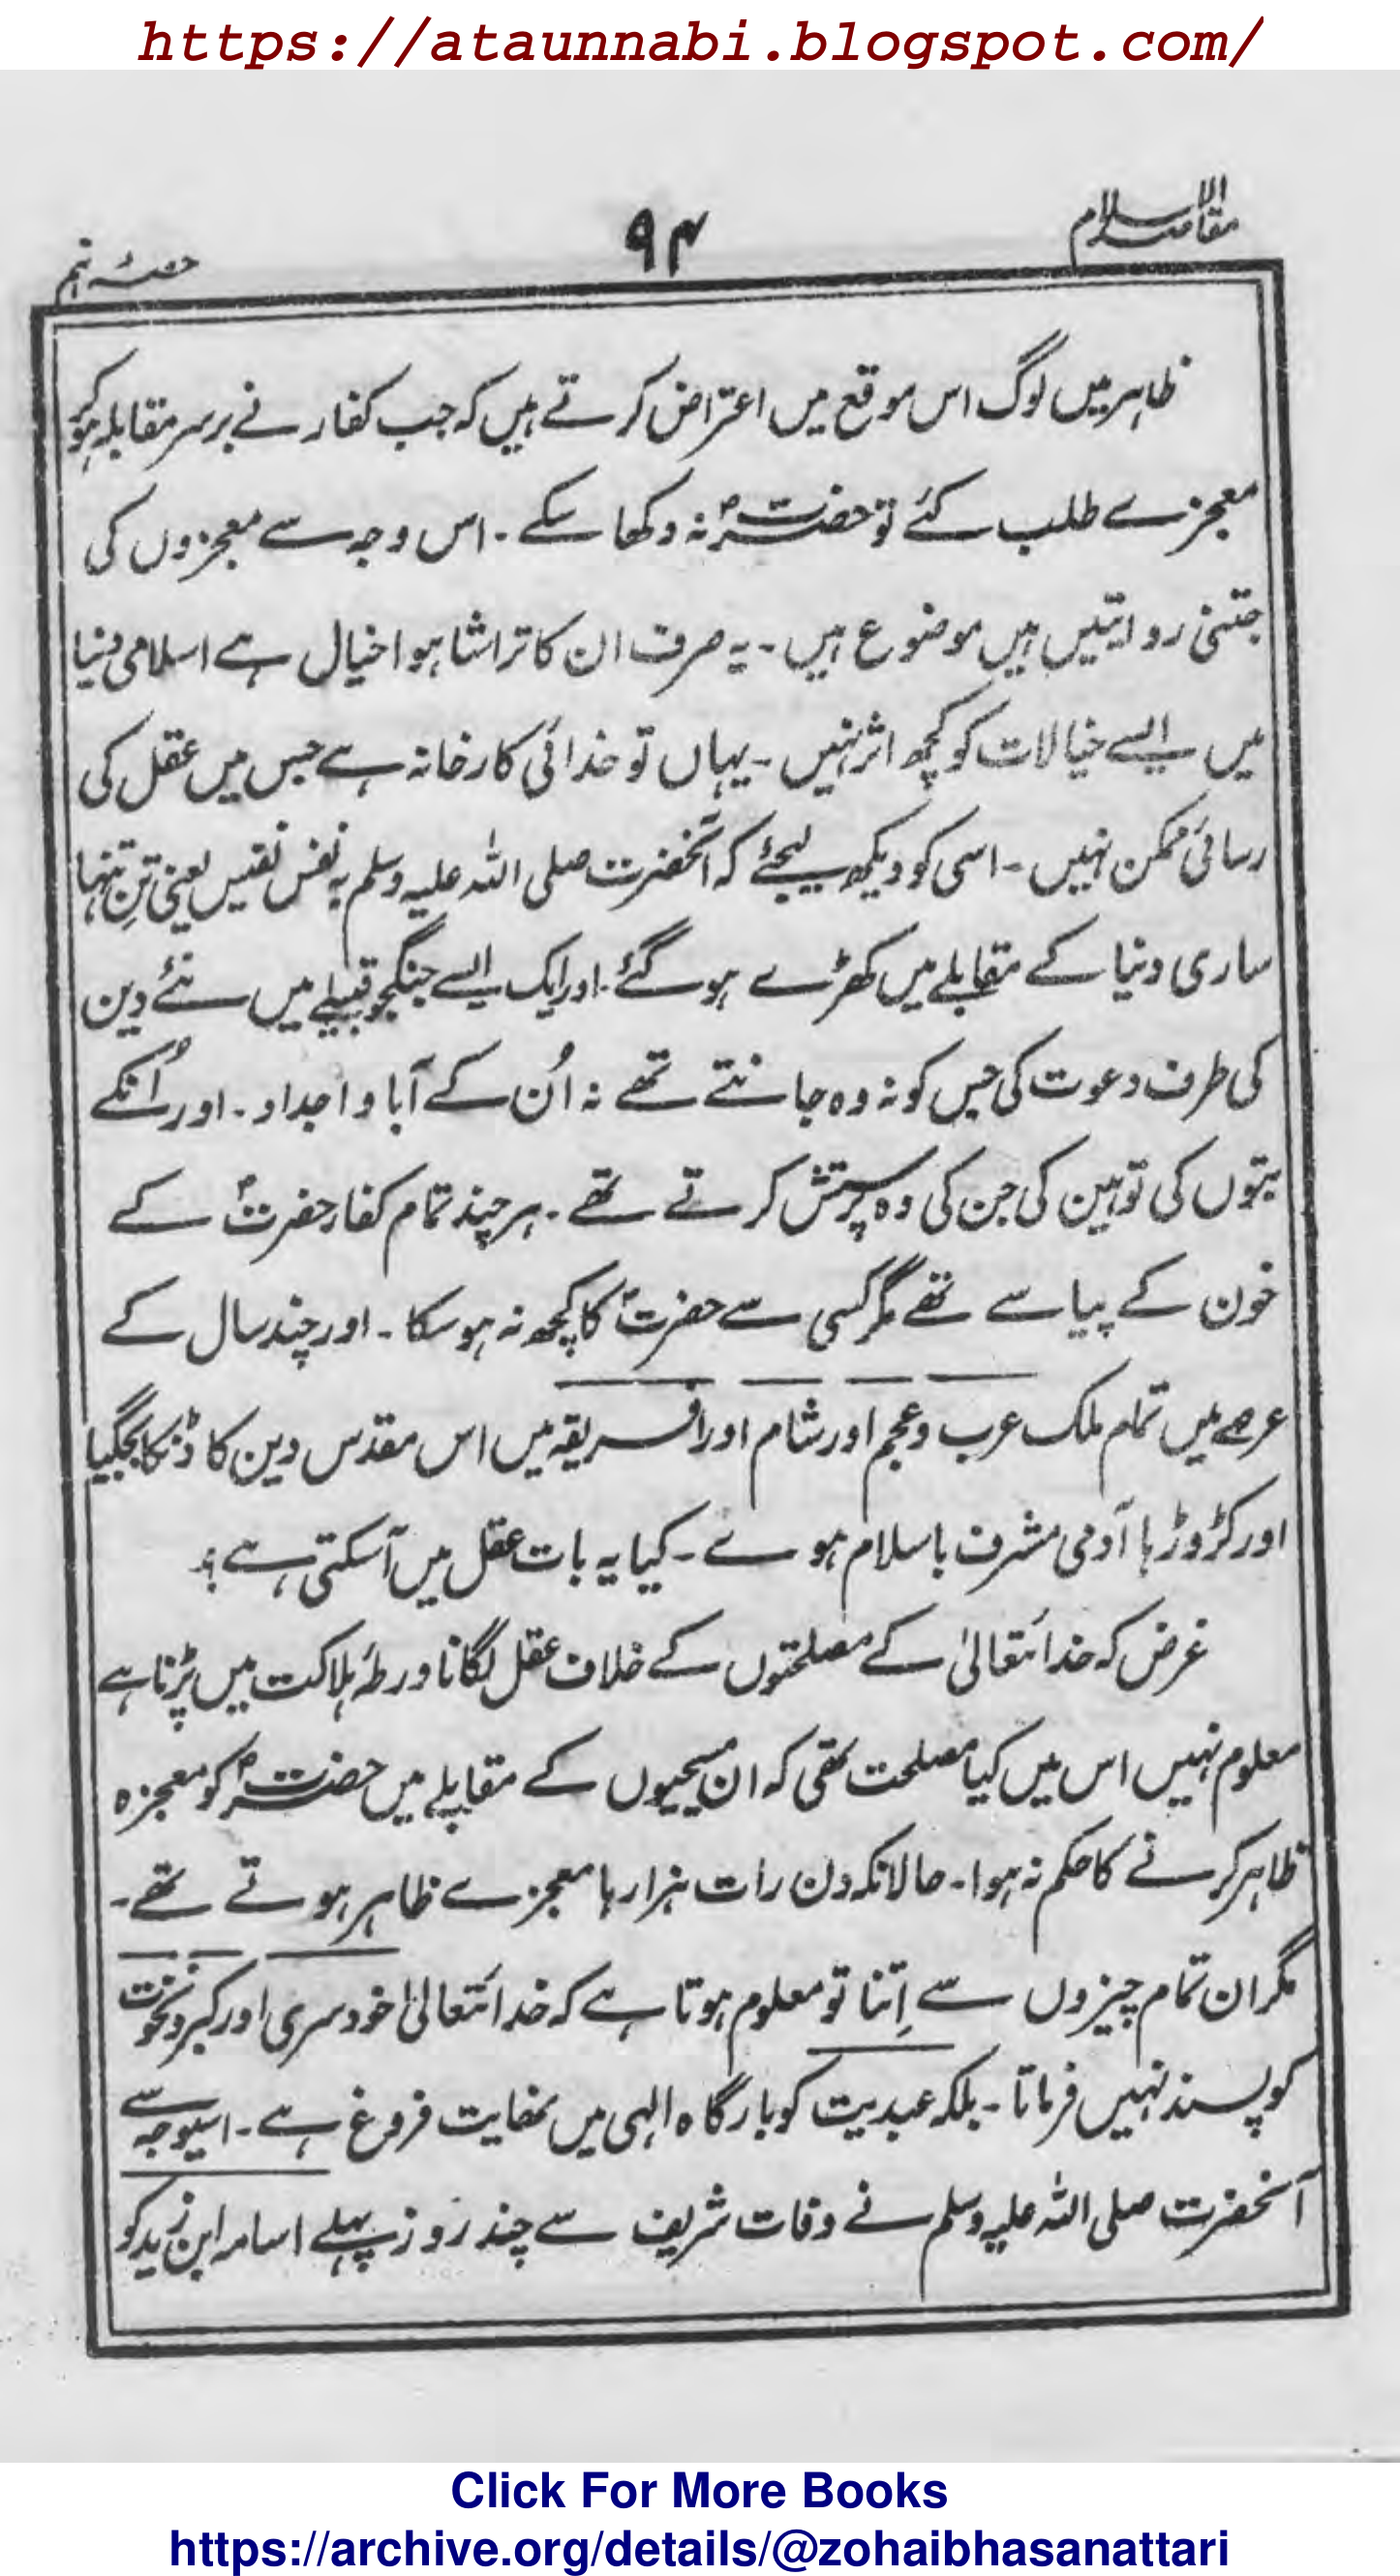 https://ataunnabi.blogspot.com/
مقاصد الاسلام
۹۴
حصۂ نہم
ظاہر میں لوگ اس موقع میں اعتراض کرتے ہیں کہ جب کفار نے برسر مقابلہ ہو کر
معجزے طلب کئے تو حضرتؐ نہ دکھا سکے ۔ اس وجہ سے معجزوں کی
جتنی روایتیں ہیں موضوع ہیں ۔ یہ صرف ان کا تراشا ہوا خیال ہے اسلامی دنیا
میں ایسے خیالات کو کچھ اثر نہیں ۔ یہاں تو خدائی کارخانہ ہے جس میں عقل کی
رسائی ممکن نہیں ۔ اسی کو دیکھ لیجئے کہ آنحضرت صلی اللہ علیہ وسلم بہ نفس نفیس یعنی تنِ تنہا
ساری دنیا کے مقابلے میں کھڑے ہو گئے ۔ اور ایک ایسے جنگجو قبیلے میں نئے دین
کی طرف دعوت کی جس کو نہ وہ جانتے تھے نہ اُن کے آبا و اجداد ۔ اور اُنکے
بتوں کی توہین کی جن کی وہ پرستش کرتے تھے ۔ ہر چند تمام کفار حضرتؐ کے
خون کے پیاسے تھے مگر کسی سے حضرتؐ کا کچھ نہ ہو سکا ۔ اور چند سال کے
عرصے میں تمام ملک عرب و عجم اور شام اور افریقہ میں اس مقدس دین کا ڈنکا بجگیا
اور کڑوڑہا آدمی مشرف باسلام ہوے ۔ کیا یہ بات عقل میں آسکتی ہے ؟
غرض کہ خدائتعالیٰ کے مصلحتوں کے خلاف عقل لگانا ورطۂ ہلاکت میں پڑنا ہے
معلوم نہیں اس میں کیا مصلحت تھی کہ ان مسیحیوں کے مقابلے میں حضرتؐ کو معجزہ
ظاہر کرنے کا حکم نہ ہوا ۔ حالانکہ دن رات ہزارہا معجزے ظاہر ہوتے تھے ۔
مگر ان تمام چیزوں سے اِتنا تو معلوم ہوتا ہے کہ خدائتعالیٰ خودسری اور کبر و نخوت
کو پسند نہیں فرماتا ۔ بلکہ عبدیت کو بارگاہ الہی میں نہایت فروغ ہے ۔ اسیوجہ سے
آنحضرت صلی اللہ علیہ وسلم نے وفات شریف سے چند روز پہلے اسامہ ابن زید کو
Click For More Books
https://archive.org/details/@zohaibhasanattari